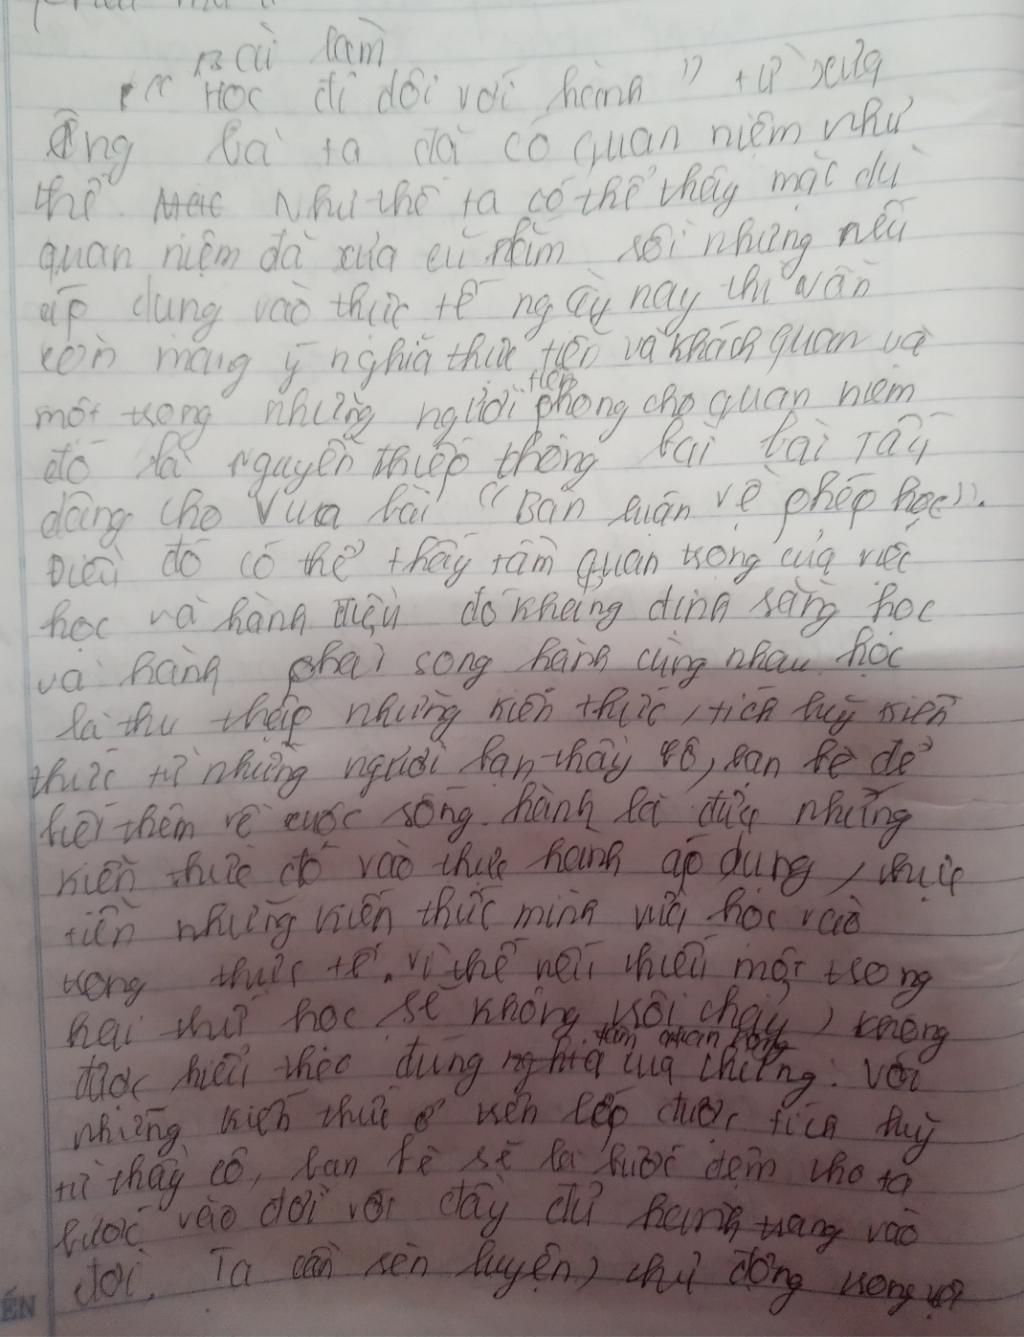 Bài làm
"Học đi đôi với hành" từ xưa
Ông bà ta đã có quan niệm như
thế. Như thế ta có thể thấy mặc dù
quan niệm đã xưa cũ rồi nhưng nếu
áp dụng vào thực tế ngày nay thì vẫn
còn mang ý nghĩa thực tiễn và khách quan và
một trong những người tiên phong cho quan niệm
đó là Nguyễn Thiếp thông bài tấu
dâng cho Vua bài "Bàn luận về phép học".
Điều đó có thể thấy tầm quan trọng của việc
học và hành điều đó khẳng định rằng học
và hành phải song hành cùng nhau học
là thu thập những kiến thức, tích luỹ kiến
thức từ những người bạn thầy cô, bạn bè để
biết thêm về cuộc sống. hành là đưa những
kiến thức đó vào thực hành áp dụng, thực
tiễn những kiến thức mình vừa học vào
trong thực tế. vì thế nếu thiếu một trong
hai thứ học sẽ không trôi chảy, không
được hiểu theo đúng tầm quan trọng của chúng. Với
những kiến thức ở trên lớp được tích luỹ
từ thầy cô, bạn bè sẽ là bước đệm cho ta
bước vào đời với đầy đủ hành trang vào
đời. Ta cần rèn luyện, chủ động trong